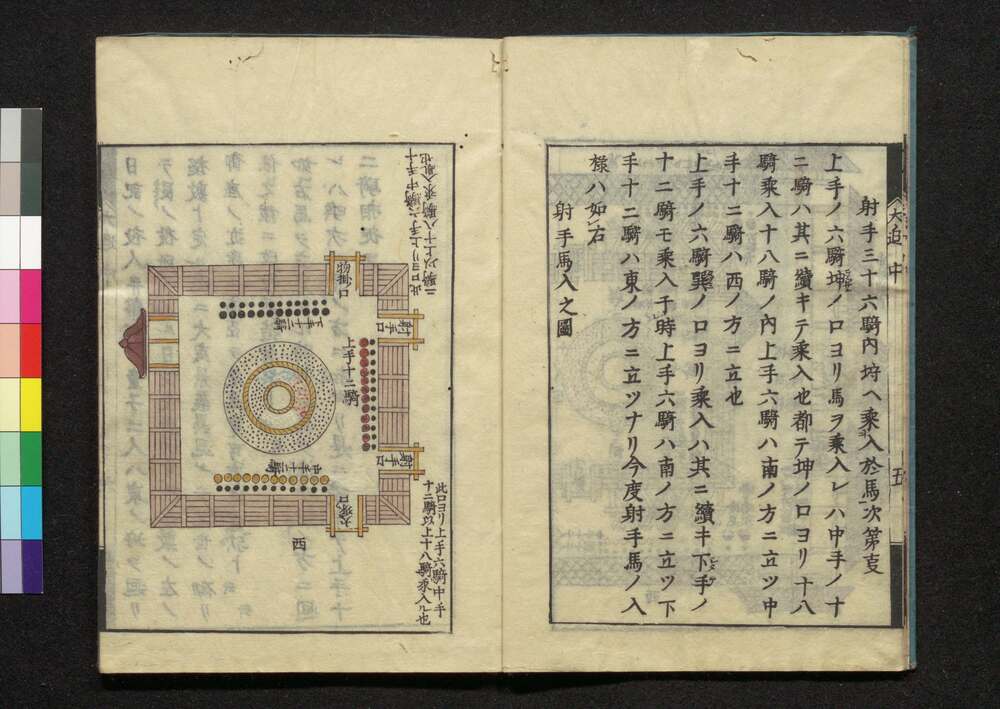 犬追 中 五
射手三十六騎内埒ヘ乗入於馬次第叓
上手ノ六騎坤ノ口ヨリ馬ヲ乗入レハ中手ノ十
二騎ハ其ニ續キテ乗入也都テ坤ノ口ヨリ十八
騎乗入十八騎ノ内上手六騎ハ南ノ方ニ立ツ中
手十二騎ハ西ノ方ニ立也
上手ノ六騎巽ノ口ヨリ乗入ハ其ニ續キ下手ノ
十二騎モ乗入于時上手六騎ハ南ノ方ニ立ツ下
手十二騎ハ東ノ方ニ立ツナリ今度射手馬ノ入
様ハ如右
射手馬入之圖
此口ヨリ上手六騎中手
十二騎以上十八騎乗入ル也
射手口
射手口
上手十二騎
下手十二騎
中手十二騎
西